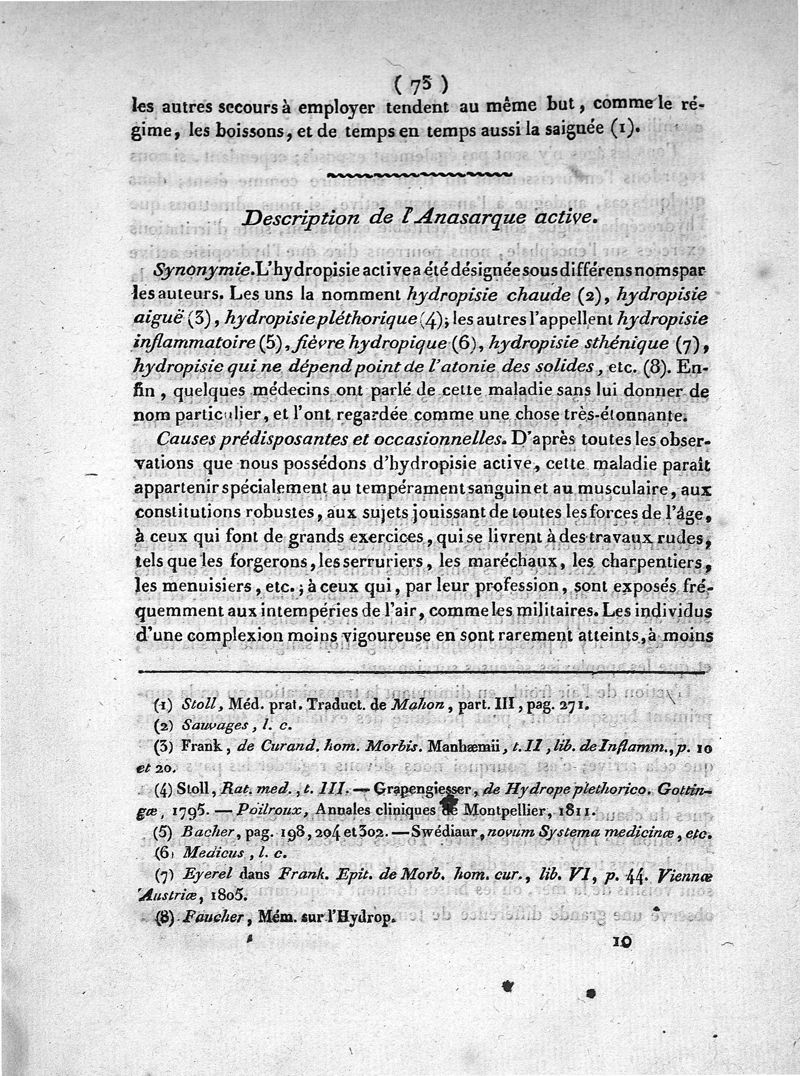 ( 75 )
les autres secours à employer tendent au même but, comme le ré-
gime, les boissons, et de temps en temps aussi la saignée (1).
Description de l'Anasarque active.
Synonymie. L'hydropisie active a été désignée sous différens noms par
les auteurs. Les uns la nomment hydropisie chaude (2), hydropisie
aiguë (3), hydropisie pléthorique (4); les autres l'appellent hydropisie
inflammatoire (5), fièvre hydropique (6), hydropisie sthénique (7),
hydropisie qui ne dépend point de l'atonie des solides, etc. (8). En-
fin, quelques médecins ont parlé de cette maladie sans lui donner de
nom particulier, et l'ont regardée comme une chose très-étonnante.
Causes prédisposantes et occasionnelles. D'après toutes les obser-
vations que nous possédons d'hydropisie active, cette maladie paraît
appartenir spécialement au tempérament sanguin et au musculaire, aux
constitutions robustes, aux sujets jouissant de toutes les forces de l'âge,
à ceux qui font de grands exercices, qui se livrent à des travaux rudes,
tels que les forgerons, les serruriers, les maréchaux, les charpentiers,
les menuisiers, etc.; à ceux qui, par leur profession, sont exposés fré-
quemment aux intempéries de l'air, comme les militaires. Les individus
d'une complexion moins vigoureuse en sont rarement atteints, à moins
(1) Stoll, Méd. prat. Traduct. de Mahon, part. III, pag. 271.
(2) Sauvages, l. c.
(3) Frank, de Curand. hom. Morbis. Manhæmii, t. II, lib. de Inflamm., p. 10
et 20.
(4) Stoll, Rat. med., t. III. — Grapengiesser, de Hydrope plethorico. Gottin-
gæ, 1795. — Poilroux, Annales cliniques de Montpellier, 1811.
(5) Bacher, pag. 198, 204 et 302. — Swédiaur, novum Systema medicinæ, etc.
(6) Medicus, l. c.
(7) Eyerel dans Frank. Epit. de Morb. hom. cur., lib. VI, p. 44. Viennæ
Austriæ, 1805.
(8) Faucher, Mém. sur l'Hydrop.
10